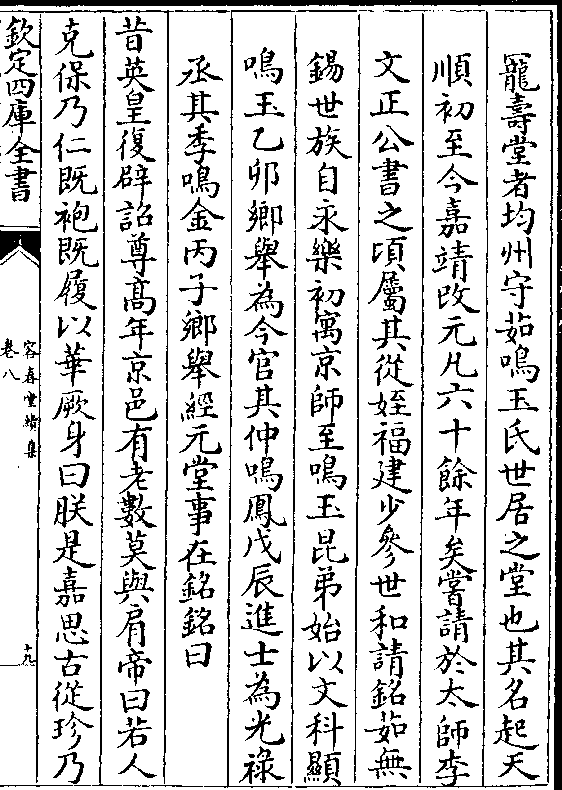 寵壽堂者均州守茹鳴玉氏世居之堂也其名起天
順初至今嘉靖改元凡六十餘年矣嘗請於太師李
文正公書之頃屬其從姪福建少參世和請銘茹無
錫世族自永樂初寓京師至鳴玉昆弟始以文科顯
鳴玉乙卯鄉舉為今官其仲鳴鳳戊辰進士為光祿
丞其季鳴金丙子鄉舉經元堂事在銘銘曰
昔英皇復辟詔尊高年京邑有老數莫與肩帝曰若人
克保乃仁既袍既履以華厥身曰朕是嘉思古從珍乃
欽定四庫全書
容春堂續集
卷八
十九